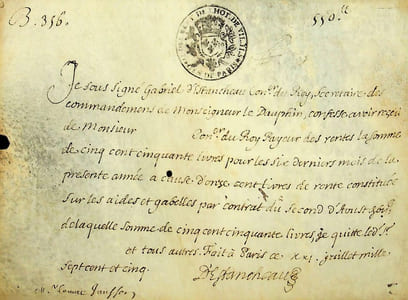 B. 356.
550.tt
Je sous signé Gabriel d'Estancheau Con.er du Roy, Secretaire des
commandemens de Monseigneur le Dauphin, confesse avoir receu
de Monsieur Con.er du Roy Payeur des rentes la somme
de cinq cent cinquante livres pour les six derniers mois de la
presente année a cause d'onze cent livres de rente constituée
sur les aides et gabelles par contrat du second d'Aoust
de laquelle somme de cinq cent cinquante livres, je quitte led. S.r
et tous autres. Fait à Paris ce XXI. juillet mille
sept cent et cinq.
DEstancheau